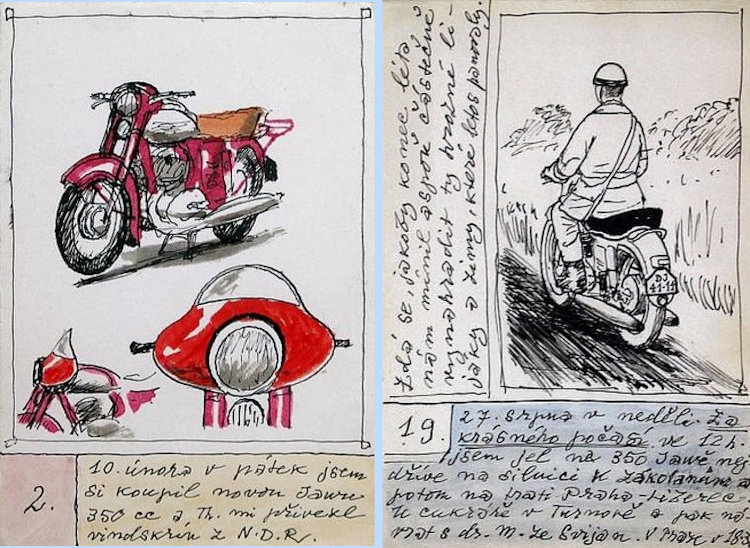 2.
10. února v pátek jsem
si koupil novou Jawu
350 cc a Th. mi přivezl
vindskrín z N.D.R.
Zdá se, jakoby konec léta
nám mínil aspoň částečně
vynahradit ty hrozné li-
jáky a zimy, které léto panovaly.
19.
27. srpna v neděli. Za
krásného počasí ve 12 h.
jsem jel na 350 Jawě nej
dříve na silnici K Zákolanům a
potom na trati Praha-Liberec.
U cukráře v Turnově a pak ná-
vrat s dr. M. ze Svijan. V Praze v 18